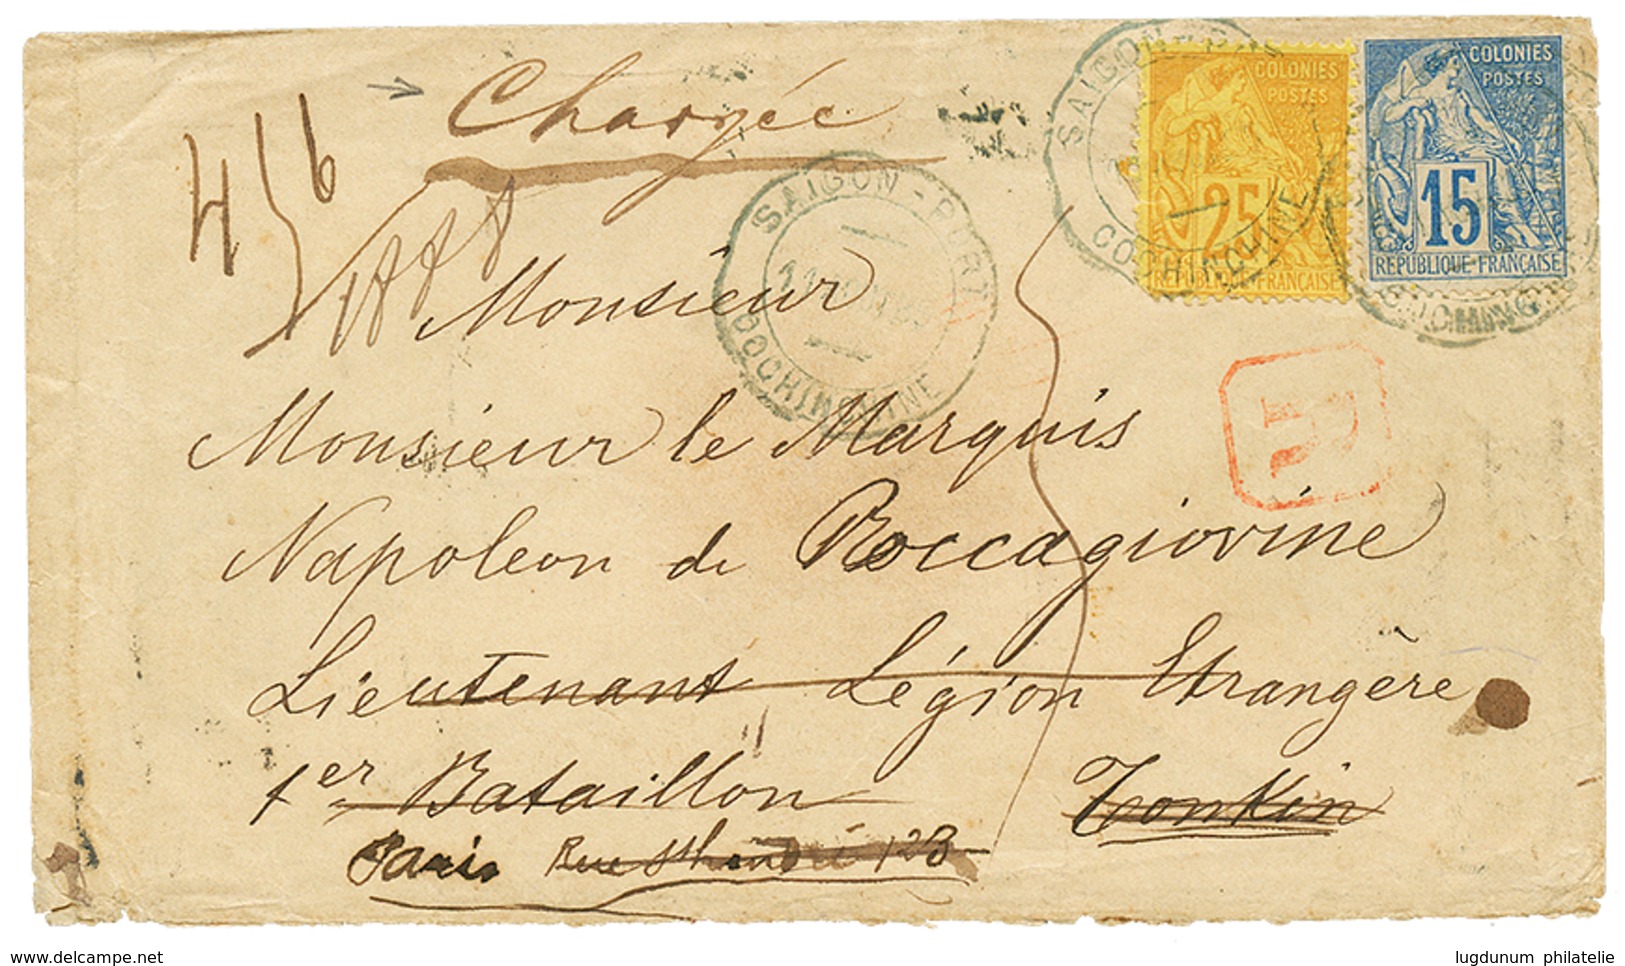 Chargée
416
Monsieur
Monsieur le Marquis
Napoleon de Roccagiovine
Lieutenant Légion Etrangère
1er Bataillon Tonkin
Paris Rue
SAIGON-PORT
COCHINCHINE
SAIGON-PORT
COCHINCHINE
COLONIES
POSTES
25
REPUBLIQUE FRANÇAISE
COLONIES
POSTES
15
REPUBLIQUE FRANÇAISE
R
www.delcampe.net
lugdunum philatelie